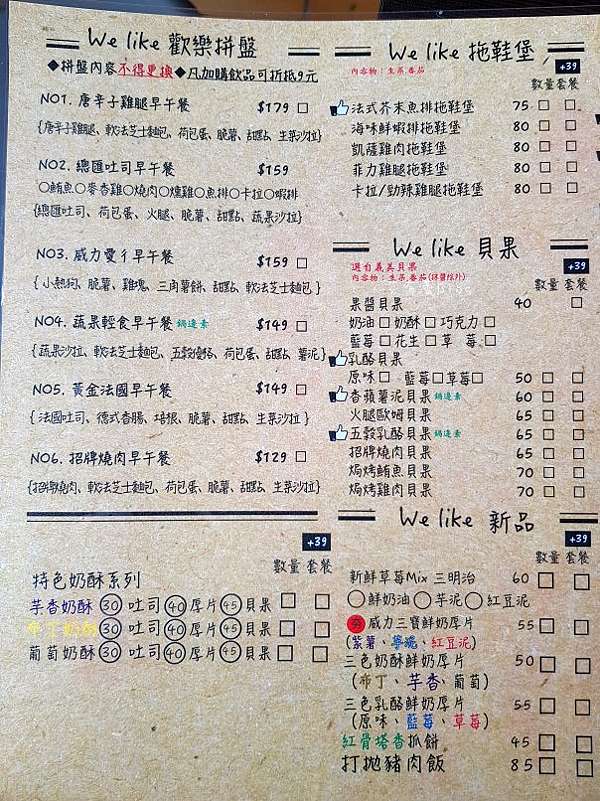 We like 歡樂拼盤
◆拼盤內容不得更換◆凡加購飲品可折抵9元
NO1. 唐辛子雞腿早午餐 $179 □
{唐辛子雞腿、軟法芝士麵包、荷包蛋、脆薯、甜點、生菜沙拉}
NO2. 總匯吐司早午餐 $159
○鮪魚○麥香雞○燒肉○燻雞○魚排○卡拉○蝦排
{總匯吐司、荷包蛋、火腿、脆薯、甜點、蔬果沙拉}
NO3. 威力愛ㄔ早午餐 $159 □
{小熱狗、脆薯、雞塊、三角薯餅、甜點、軟法芝士麵包}
NO4. 蔬果輕食早午餐 鍋邊素 $149 □
{蔬果沙拉、軟法芝士麵包、五穀優格、荷包蛋、甜點、薯泥}
NO5. 黃金法國早午餐 $149 □
{法國吐司、德式香腸、培根、脆薯、甜點、生菜沙拉}
NO6. 招牌燒肉早午餐 $129 □
{招牌燒肉、軟法芝士麵包、荷包蛋、脆薯、甜點、生菜沙拉}
+39
數量 套餐
特色奶酥系列
芋香奶酥 30 吐司 40 厚片 45 貝果 □ □
布丁奶酥 30 吐司 40 厚片 45 貝果 □ □
葡萄奶酥 30 吐司 40 厚片 45 貝果 □ □
We like 拖鞋堡
內容物：生菜.番茄
+39
數量 套餐
法式芥末魚排拖鞋堡 75 □ □
海味鮮蝦排拖鞋堡 80 □ □
凱薩雞肉拖鞋堡 80 □ □
菲力雞腿拖鞋堡 80 □ □
卡拉/勁辣雞腿拖鞋堡 80 □ □
We like 貝果
選自義美貝果
內容物：生菜.番茄(抹醬除外)
+39
數量 套餐
果醬貝果 40 □
奶油□奶酥□巧克力□
藍莓□花生□草莓.□
乳酪貝果
原味□ 藍莓□草莓□ 50 □ □
香蘋薯泥貝果 鍋邊素 60 □ □
火腿歐姆貝果 65 □ □
五穀乳酪貝果 鍋邊素 65 □ □
招牌燒肉貝果 65 □ □
焗烤鮪魚貝果 70 □ □
焗烤雞肉貝果 70 □ □
We like 新品
+39
數量 套餐
新鮮草莓Mix 三明治 60 □ □
○鮮奶油○芋泥○紅豆泥
威力三寶鮮奶厚片 55 □ □
(紫薯、芋泥、紅豆泥)
三色奶酥鮮奶厚片 50 □ □
(布丁、芋香、葡萄)
三色乳酪鮮奶厚片 55 □ □
(原味、藍莓、草莓)
紅骨塔香抓餅 45 □ □
打拋豬肉飯 85 □ □